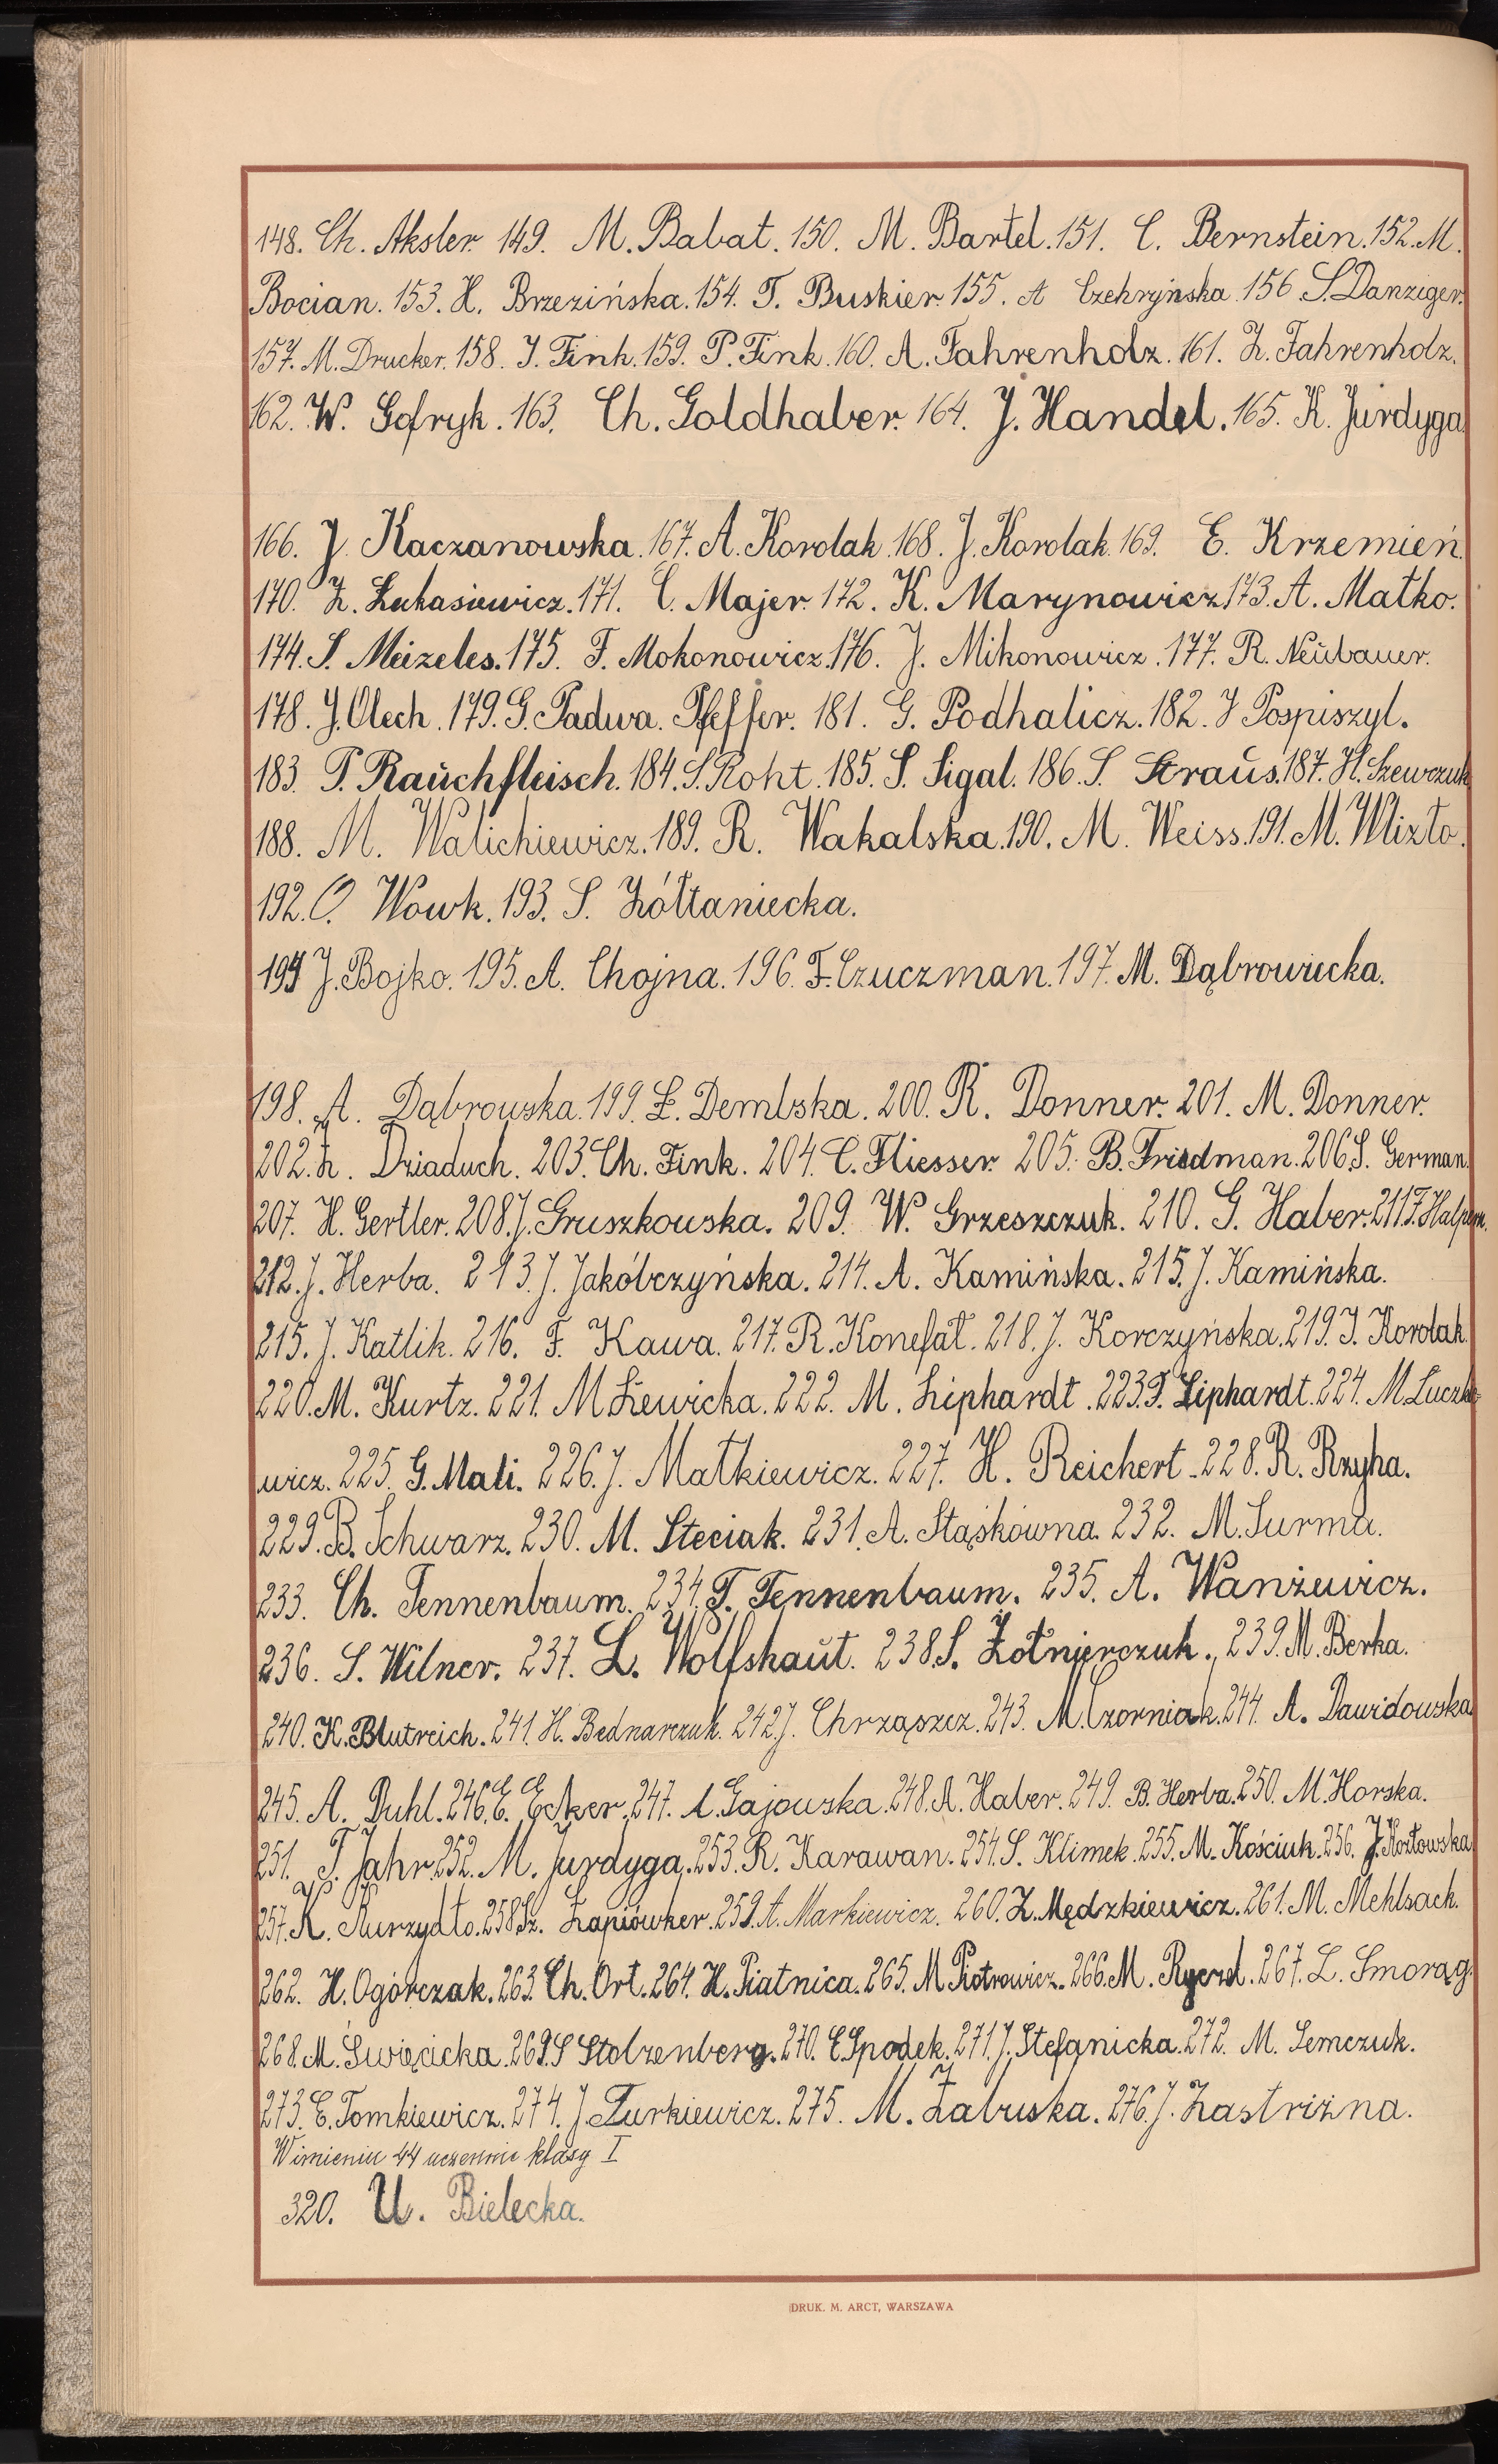 148. Ch. Aksler. 149. M. Babat. 150. M. Bartel. 151. C. Bernstein. 152. M.
Bocian. 153. H. Brzezińska. 154. T. Buskier. 155. A Czehryńska 156 S. Danziger.
157. M. Drucker. 158. J. Fink. 159. P. Fink. 160. A. Fahrenholz. 161. Z. Fahrenholz.
162. W. Gofryk. 163. Ch. Goldhaber. 164. J. Handel. 165. K. Jurdyga
166. J. Kaczanowska. 167. A. Korolak 168. J. Korolak 169. E. Krzemień
170. Z. Łukasiewicz. 171. C. Majer. 172. K. Marynowicz 173. A. Matko.
174. S. Meizeles. 175. F. Mokonowicz. 176. J. Mikonowicz. 177. R. Neŭbauer.
178. J. Olech. 179. G. Padwa. Pfeffer. 181. G. Podhalicz. 182. J Pospiszyl.
183. P. Raŭchfleisch. 184. S. Roht. 185. S. Sigal. 186. S. Straŭs. 187. H. Szewczuk
188. M. Walichiewicz. 189. R. Wakalska. 190. M. Weiss. 191. M. Wlizło.
192. O. Wowk. 193. S. Żółtaniecka.
194 J. Bojko. 195. A. Chojna. 196. F. Czuczman. 197. M. Dąbrowiecka.
198. A. Dąbrowska. 199. Z. Dembska. 200. R. Donner. 201. M. Donner.
202. Z. Dziaduch. 203. Ch. Fink. 204. C. Fliesser. 205. B. Friedman. 206. S. German.
207. H. Gertler. 208. J. Gruszkowska. 209. W. Grzeszczuk. 210. G. Haber. 211. F. Halpern.
212. J. Herba. 213. J. Jakóbczyńska. 214. A. Kamińska. 215. J. Kamińska.
215. J. Katlik. 216. F. Kawa. 217. R. Konefał. 218. J. Korczyńska. 219. J. Korolak.
220. M. Kurtz. 221. M Lewicka. 222. M. Liphardt. 223. T. Liphardt. 224. M. Luczke
wicz. 225. G. Mali. 226. J. Matkiewicz. 227. H. Reichert. 228. R. Rzyha.
229. B. Schwarz. 230. M. Steciak. 231. A. Stąskówna. 232. M. Surma.
233. Ch. Tennenbaum. 234. T. Tennenbaum. 235. A. Wanżewicz.
236. S. Wilner. 237. L. Wolfshaŭt. 238. S. Żołnierczuk. 239. M. Berka.
240. K. Blutreich. 241. H. Bednarczuk. 242. J. Chrząszcz. 243. M. Czorniak. 244. A. Dawidowska
245. A. Duhl. 246. E. Ecker. 247. A. Gajowska. 248. A. Haber. 249. B. Herba. 250. M. Horska.
251. T. Jahr. 252. M. Jurdyga. 253. R. Karawan. 254. S. Klimek. 255. M. Kościuk. 256. J. Kozłowska
257. K. Kurzydło. 258. Sz. Łapiówker. 259. A. Markiewicz. 260. Z. Mędzkiewicz. 261. M. Mehlsack.
262. H. Ogórczak. 263. Ch. Ort. 264. H. Piatnica. 265. M Piotrowicz. 266. M. Rycerd. 267. L. Smorąg.
268. M. Święcicka. 269. S Stolzenberg. 270. C. Spodek. 271. J. Stefanicka. 272. M. Semczuk.
273. E. Tomkiewicz. 274. J. Turkiewicz. 275. M. Zabuska. 276. J. Zastriżna.
W imieniu 44 uczennic klasy I
320. U. Bielecka.
DRUK. M. ARCT, WARSZAWA